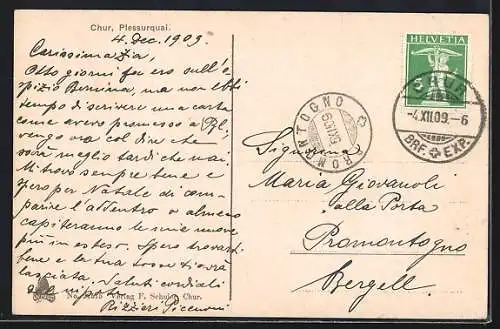 Chur, Plessurquai.
4. Dec. 1909.
Carissima Zia,
Otto giorni fa ero sull'o
spizio Bernina, ma non ebbi
tempo di scrivere una carta
come avevo promesso a
vengo ora col dire che
sarà meglio tardi che mai.
Mi trovo sempre bene e
spero per Natale di com-
parire l'addentro o almeno
capiteranno le mie nuove
più in esteso. Spero trovarti
bene e la tua tosse ti avrà
lasciata. Saluti cordiali
dal nipote
Rizzieri Picenoni
No. Verlag F. Schuler, Chur.
HELVETIA
5
CHUR
-4.XII.09.-6
BRF. EXP.
PROMONTOGNO
Signorina
Maria Giovanoli
alla Porta
Promontogno
Bergell